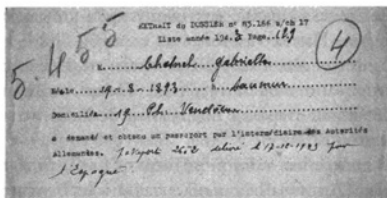 5.455
EXTRAIT du DOSSIER n° 83.186 s/ch 17
liste année 194.3 Page 129
4
M. Chasnel Gabrielle
Née le 19-8-1893 à Saumur
Domiciliée 19 Pl. Vendôme
a demandé et obtenu un passeport par l'intermédiaire des Autorités
Allemandes. passeport délivré le 17-12-1943 pour
l'Espagne